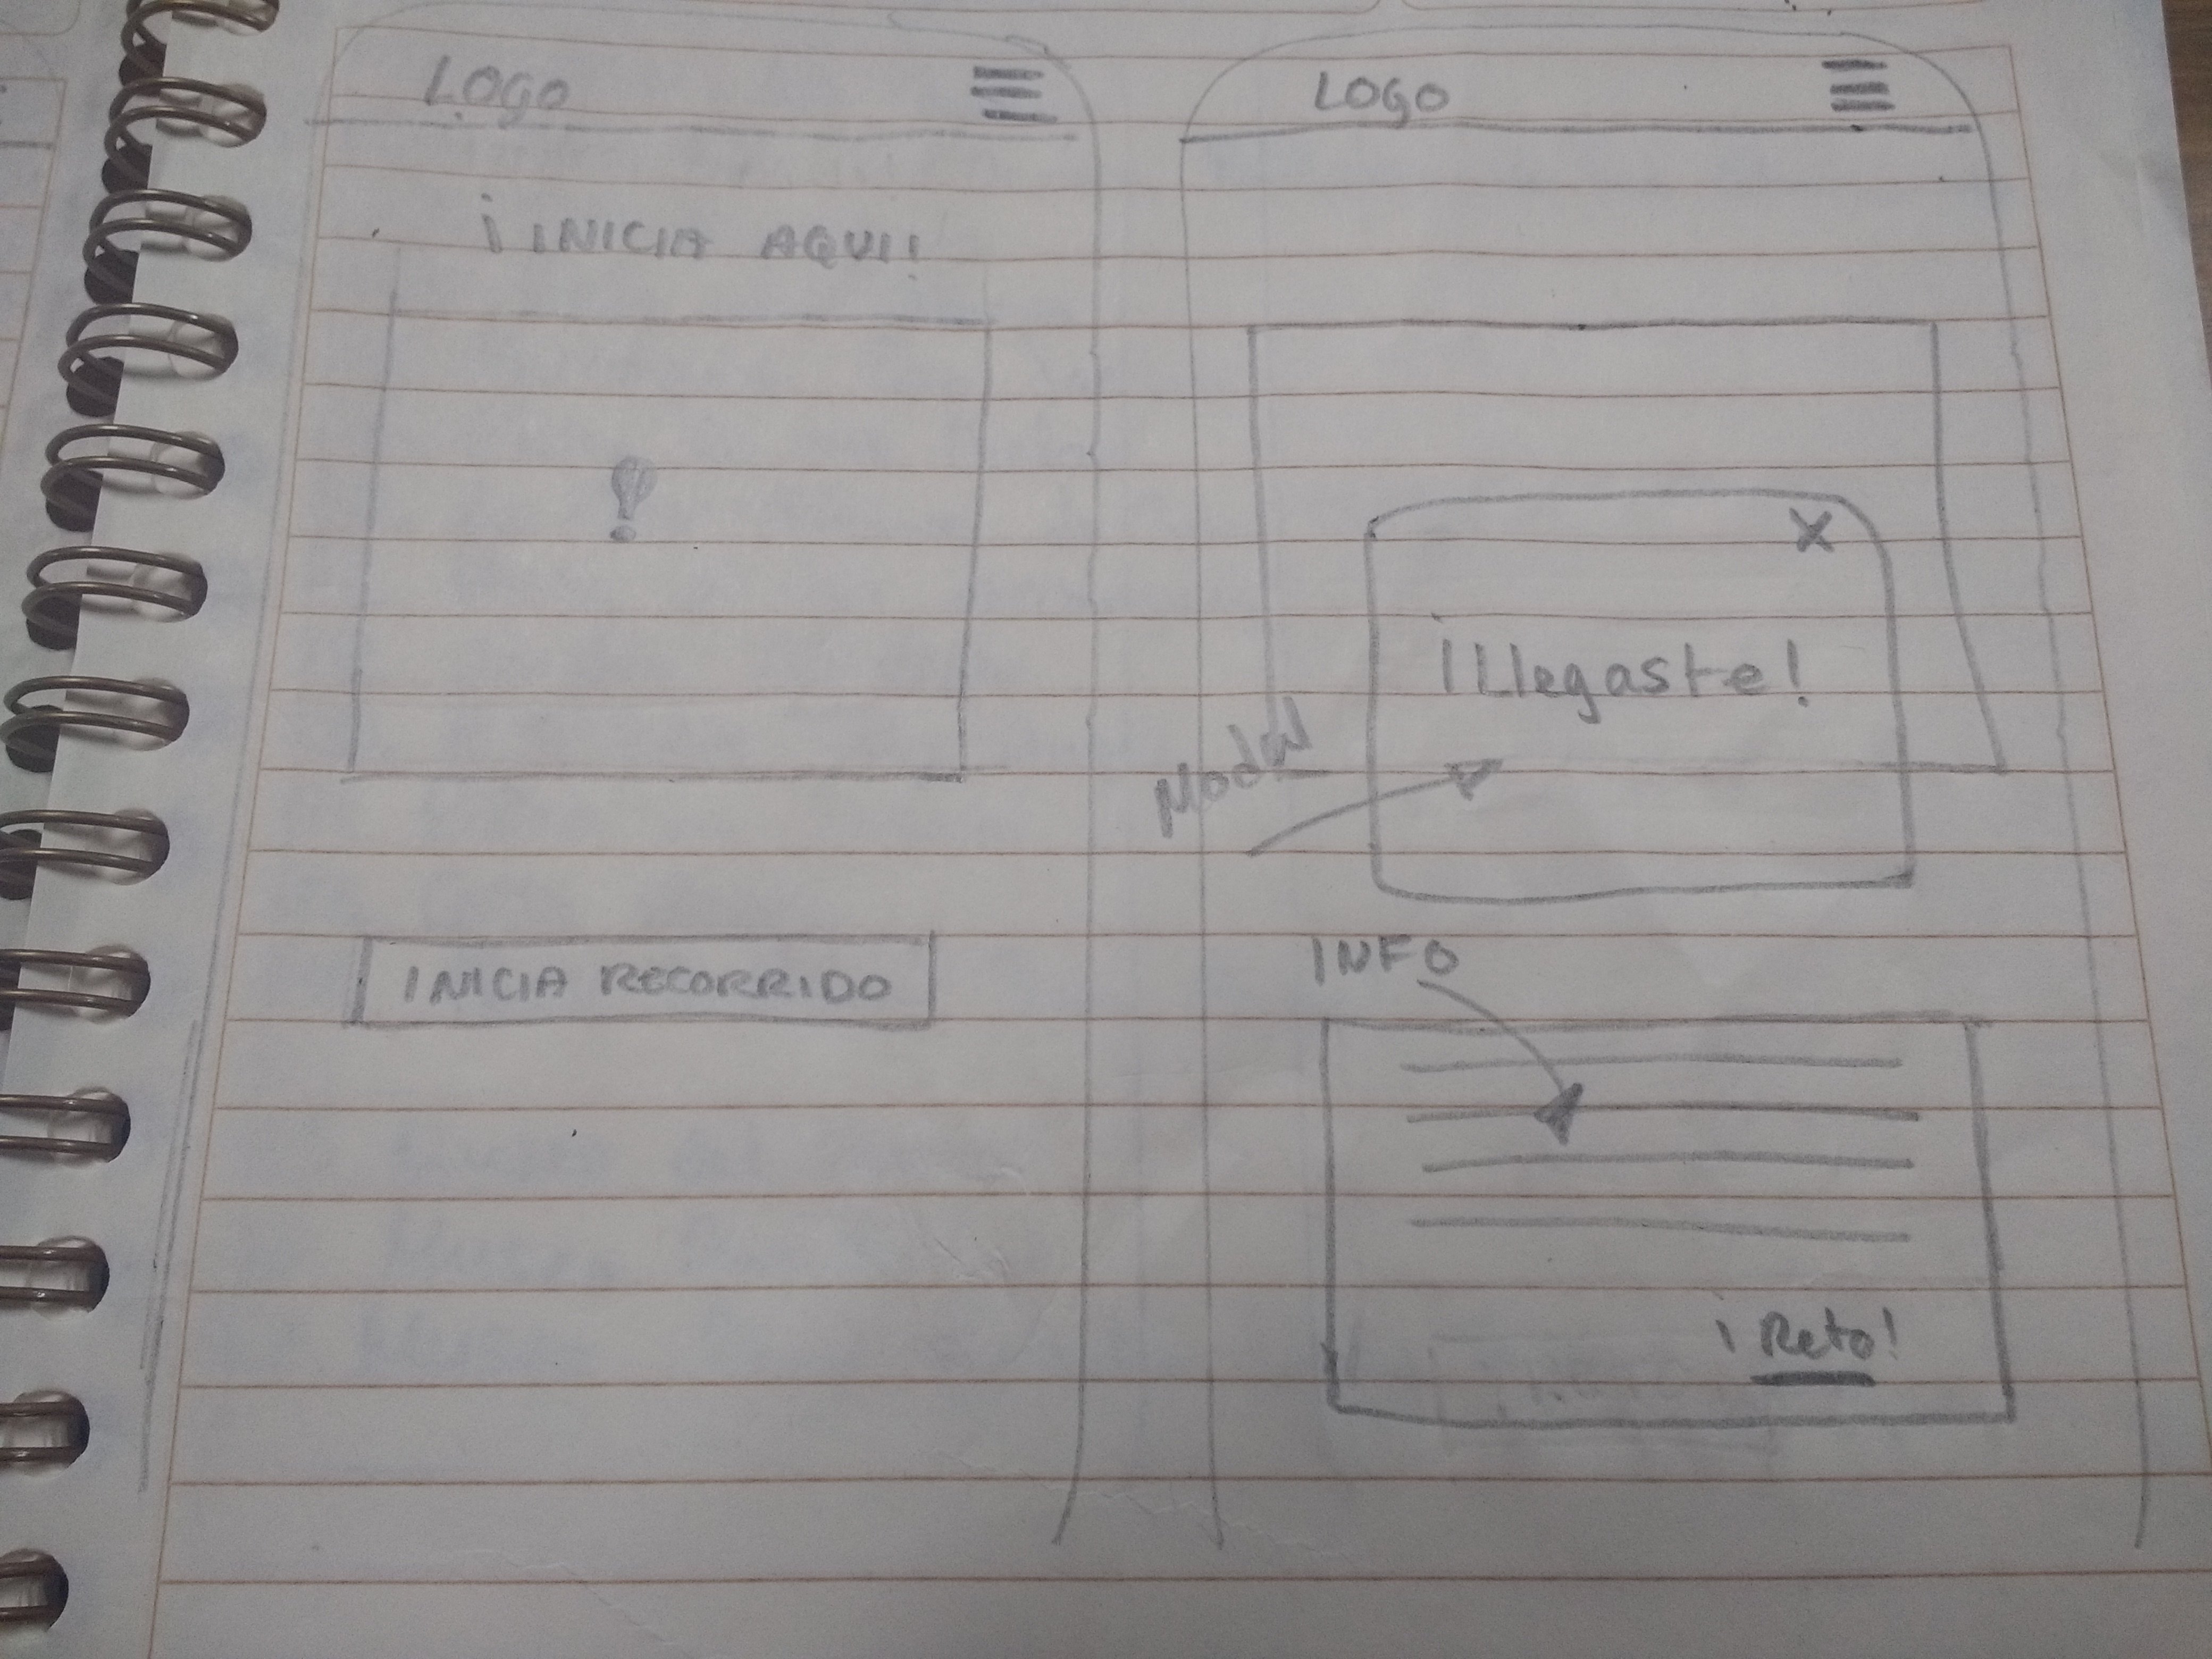 LOGO
¡INICIA AQUI!
INICIA RECORRIDO
LOGO
X
¡Llegaste!
Modal
INFO
¡Reto!